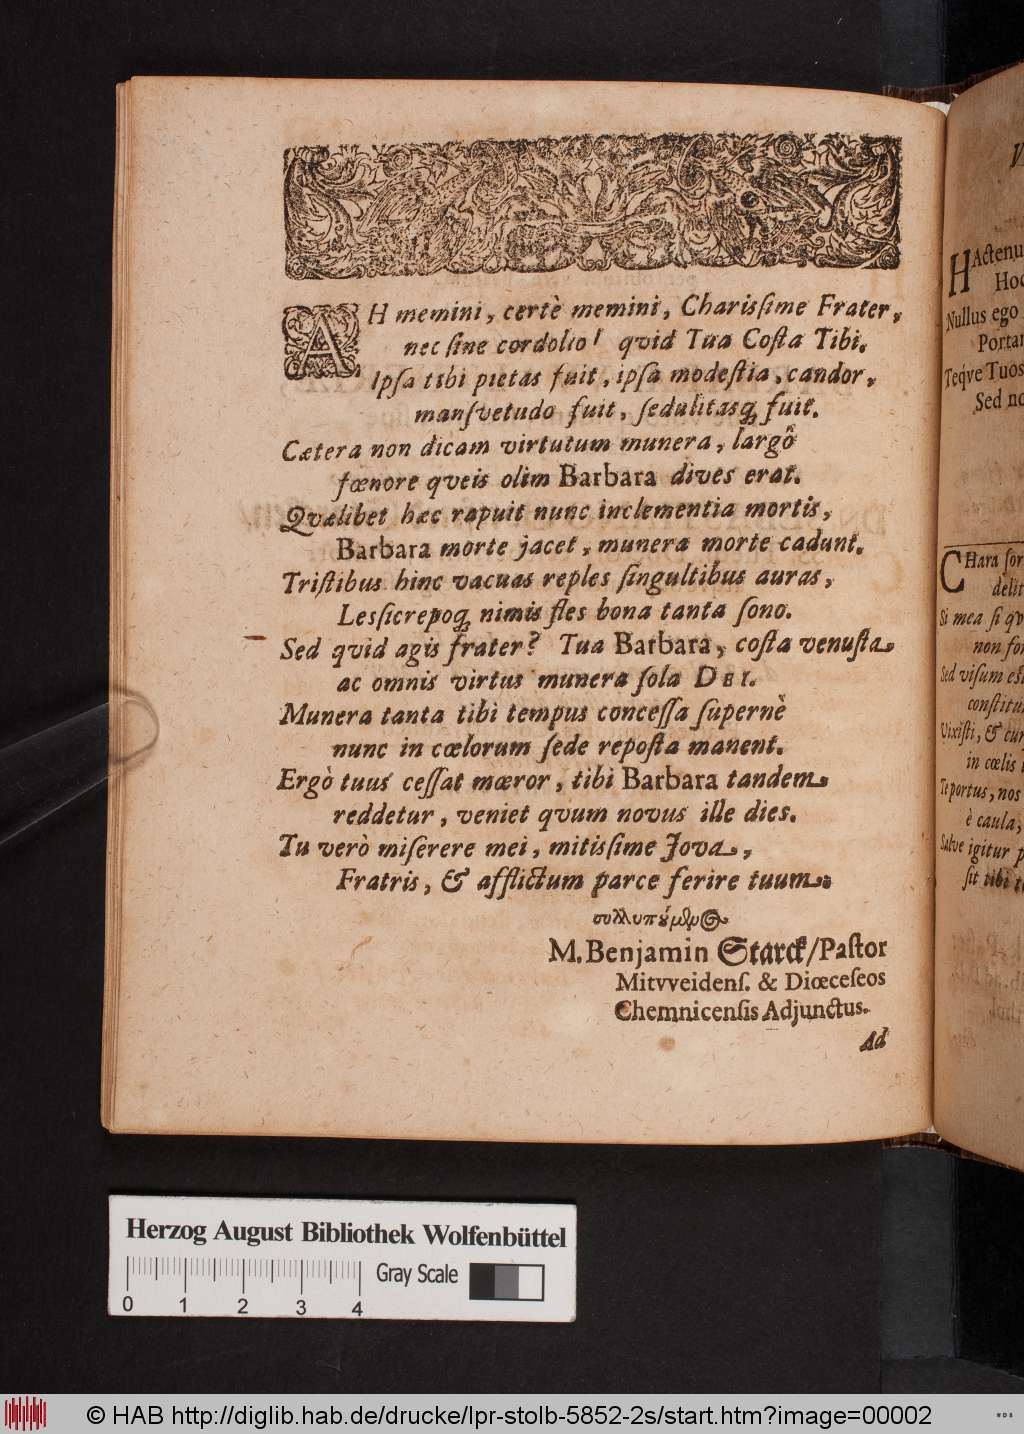 AH memini, certè memini, Charisſime Frater,
nec ſine cordolio! quid Tua Coſta Tibi.
Ipſa tibi pietas fuit, ipſa modeſtia, candor,
manſvetudo fuit, ſedulitasq; fuit.
Cætera non dicam virtutum munera, largô
fœnore qveis olim Barbara dives erat.
Qvælibet hæc rapuit nunc inclementia mortis,
Barbara morte jacet, munera morte cadunt.
Triſtibus hinc vacuas reples ſingultibus auras,
Lesſicrepoq; nimis fles bona tanta ſono.
Sed qvid agis frater? Tua Barbara, coſta venuſta
ac omnis virtus munera ſola DEI.
Munera tanta tibi tempus conceſſa ſupernè
nunc in cœlorum ſede repoſta manent.
Ergò tuus ceſſat mœror, tibi Barbara tandem
reddetur, veniet qvum novus ille dies.
Tu verò miſerere mei, mitisſime Jova,
Fratris, & afflictum parce ferire tuum.
συλλυπούμθρος
M. Benjamin Starck/Paſtor
Mitvveidenſ. & Diœceſeos
Chemnicenſis Adjunctus.
Ad
HActenu
Hoc
Nullus ego
Portar
Teqve Tuos
Sed no
CHara ſor
delit
Si mea ſi qv
non for
Sed viſum eſt
conſtitu
Vixiſti, & cur
in cœlis
Te portus, nos
è caula,
Salve igitur p
ſit tibi t
Herzog August Bibliothek Wolfenbüttel
Gray Scale
0 1 2 3 4
© HAB http://diglib.hab.de/drucke/lpr-stolb-5852-2s/start.htm?image=00002